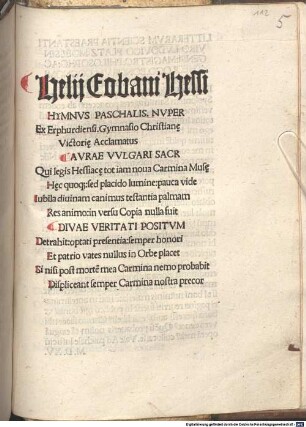 112
5
Helij Eobani Hessi
HYMNVS PASCHALIS. NVPER
Ex Erphurdiensi. Gymnasio Christianę
Victorię Acclamatus
AVRAE VVLGARI SACR
Qui legis Hessiacę tot iam noua Carmina Musę
Hęc quoq; sed placido lumine: pauca vide
Iubila diuinam canimus testantia palmam
Res animo: in versu Copia nulla fuit
DIVAE VERITATI POSITVM
Detrahit: optati presentia: semper honori
Et patrio vates nullus in Orbe placet
Et nisi post mortē mea Carmina nemo probabit
Displiceant semper Carmina nostra precor